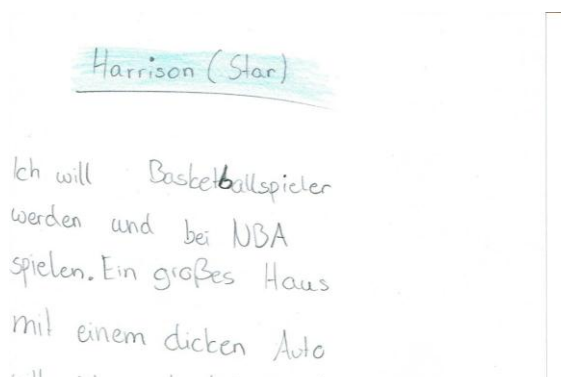 Harrison (Star)
Ich will Basketballspieler
werden und bei NBA
spielen. Ein großes Haus
mit einem dicken Auto